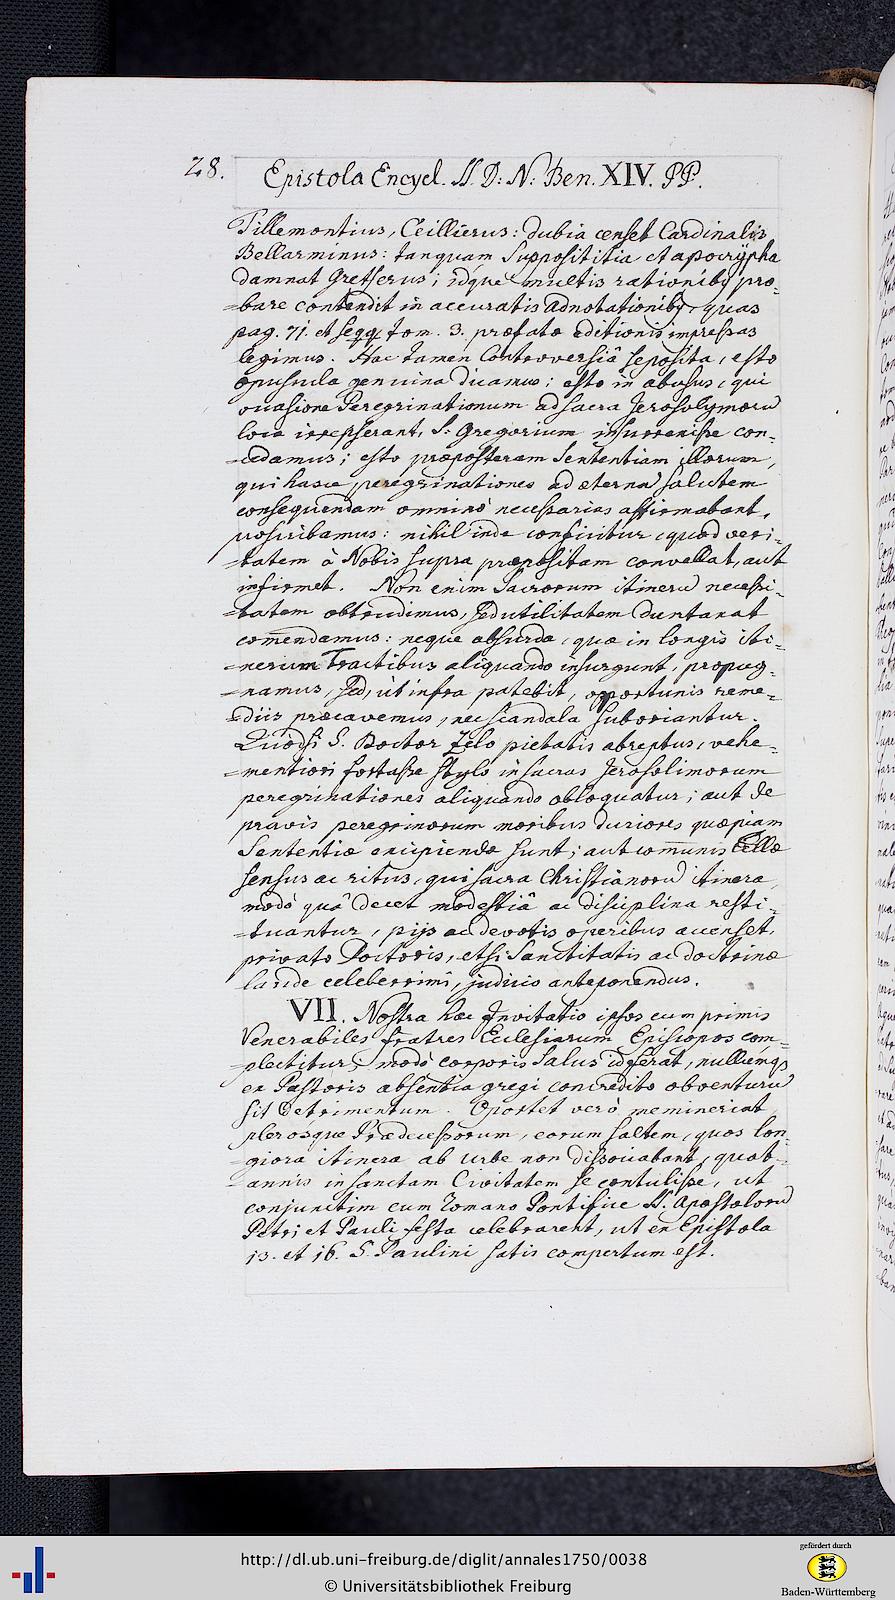 28.
Epistola Encycl. SS. D: N: Ben. XIV. PP.
Tillemontius, Ceillierus: dubia censet Cardinalis
Bellarminus: tanquam Supposititia et apocrÿpha
damnat Gretserus; idque multis rationibq pro-
=bare contendit in accuratis adnotationibq, quas
pag. 71. et seqq. tom. 3. præfatæ editionis impressas
legimus. Hac tamen Controversiâ sepositâ, esto
opuscula genuina dicamus; esto in abusus, qui
occasione Peregrinationum ad sacra Jerosolymorũ
loca irrepserant, S. Gregorium insurrexisse con-
=cedamus; esto præposteram Sententiam illorum,
qui hasce peregrinationes ad æternã salutem
consequendam omninò necessarias affirmabant,
proscribamus: nihil inde conficitur, quod veri-
=tatem à Nobis supra præpositam convellat, aut
infirmet. Non enim Sacrorum itinerũ necessi-
=tatem obtrudimus, sed utilitatem duntaxat
com̃endamus: neque absurda, quæ in longis iti-
=nerum Tractibus aliquando insurgunt, propug-
=namus, sed, ùt infra patebit, opportunis reme-
=diis præcavemus, nec scandala suboriantur.
Quòdsi S. Doctor zelo pietatis abreptus, vehe-
=mentiori fortasse stylo in sacras Jerosolimorum
peregrinationes aliquando obloquatur; aut de
pravis peregrinorum moribus duriores quæpiam
Sententiæ excipiendæ sunt; aut com̃unis Ecclæ
sensus ac ritus, qui sacra Christianorũ itinera,
modò quâ decet modestiâ ac disciplina resti-
=tuantur, pijs ac devotis operibus accenset,
privato Doctoris, etsi Sanctitatis ac doctrinæ
laude celeberrimi, judicio anteponendus.
VII. Nostra hæc Invitatio ipsos cum primis
Venerabiles fratres Ecclesiarum Episcopos com-
=plectitur; modò corporis Salus id ferat, nullumq
ex Pastoris absentia gregi concredito obventurũ
sit detrimentum. Oportet verò meminerint
plerosque Prædecessorum, eorum saltem, quos lon-
=giora itinera ab urbe non dissociabant, quot-
=annis in sanctam Civitatem se contulisse, ut
conjunctim cum Romano Pontifice SS. Apostolorũ
Petri et Pauli festa celebrarent, ut ex Epistola
13. et 16. S. Paulini satis compertum est.
http://dl.ub.uni-freiburg.de/diglit/annales1750/0038
© Universitätsbibliothek Freiburg
gefördert durch
Baden-Württemberg